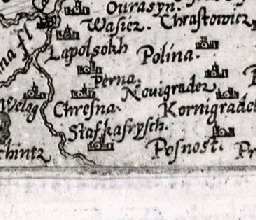 Ourasyn.
Wasicz. Chrastowicz
Lapolsokh
Polina.
Perna.
Nouigradez
Chresna.
Kornigradec
Staskasrysch.
Posnost.